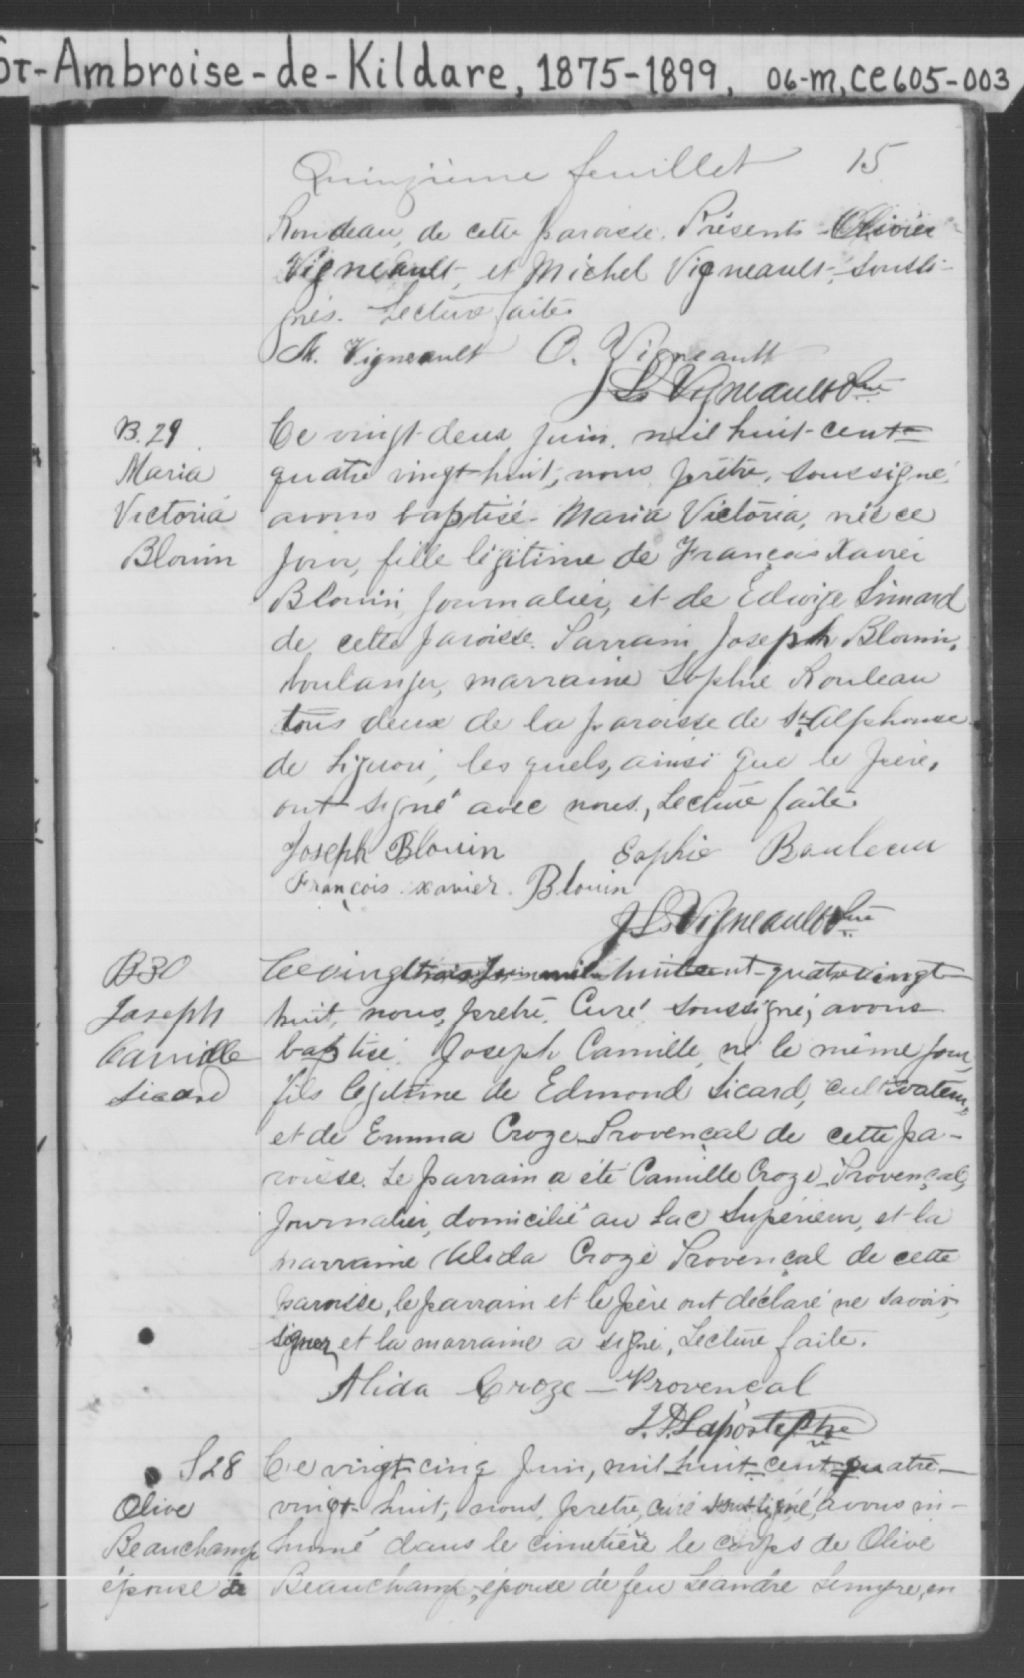 St-Ambroise-de-Kildare, 1875-1899, 06-M, CE605-003
Quinzième feuillet 15
Rondeau, de cette paroisse. Présents Olivier
Vigneault, et Michel Vigneault, soussi-
gnés. Lecture faite.
M. Vigneault O. Vigneault
J. L. Vigneault Ptre
B. 29
Maria
Victoria
Blouin
Ce vingt-deux juin, mil huit-cent-
quatre vingt-huit, nous, prêtre, soussigné,
avons baptisé Maria Victoria, née ce
jour, fille légitime de François Xavier
Blouin, journalier, et de Edwige Simard
de cette paroisse. Parrain Joseph Blouin,
boulanger, marraine Sophie Rouleau
tous deux de la paroisse de St Alphonse
de Liguori, les quels, ainsi que le père,
ont signé avec nous, Lecture faite.
Joseph Blouin Sophie Rouleau
François xavier Blouin
J. L. Vigneault Ptre
B30
Joseph
Camille
Sicard
Ce vingt trois Juin mil huit cent quatre vingt
huit, nous, prêtre, Curé soussigné, avons
baptisé Joseph Camille, né le même jour,
fils légitime de Edmond Sicard, cultivateur,
et de Emma Croze Provençal de cette pa-
roisse. Le parrain a été Camille Croze Provençal,
journalier, domicilié au Lac Supérieur, et la
marraine Alida Croze Provençal de cette
paroisse, le parrain et le père ont déclaré ne savoir
signer et la marraine a signé, Lecture faite.
Alida Croze - Provençal
Laporte Ptre
S28
Olive
Beauchamp
épouse de
Ce vingt-cinq Juin, mil-huit-cent-quatre-
vingt-huit, nous, prêtre, curé soussigné, avons in-
humé dans le cimetière le corps de Olive
Beauchamp, épouse de feu Léandre, en